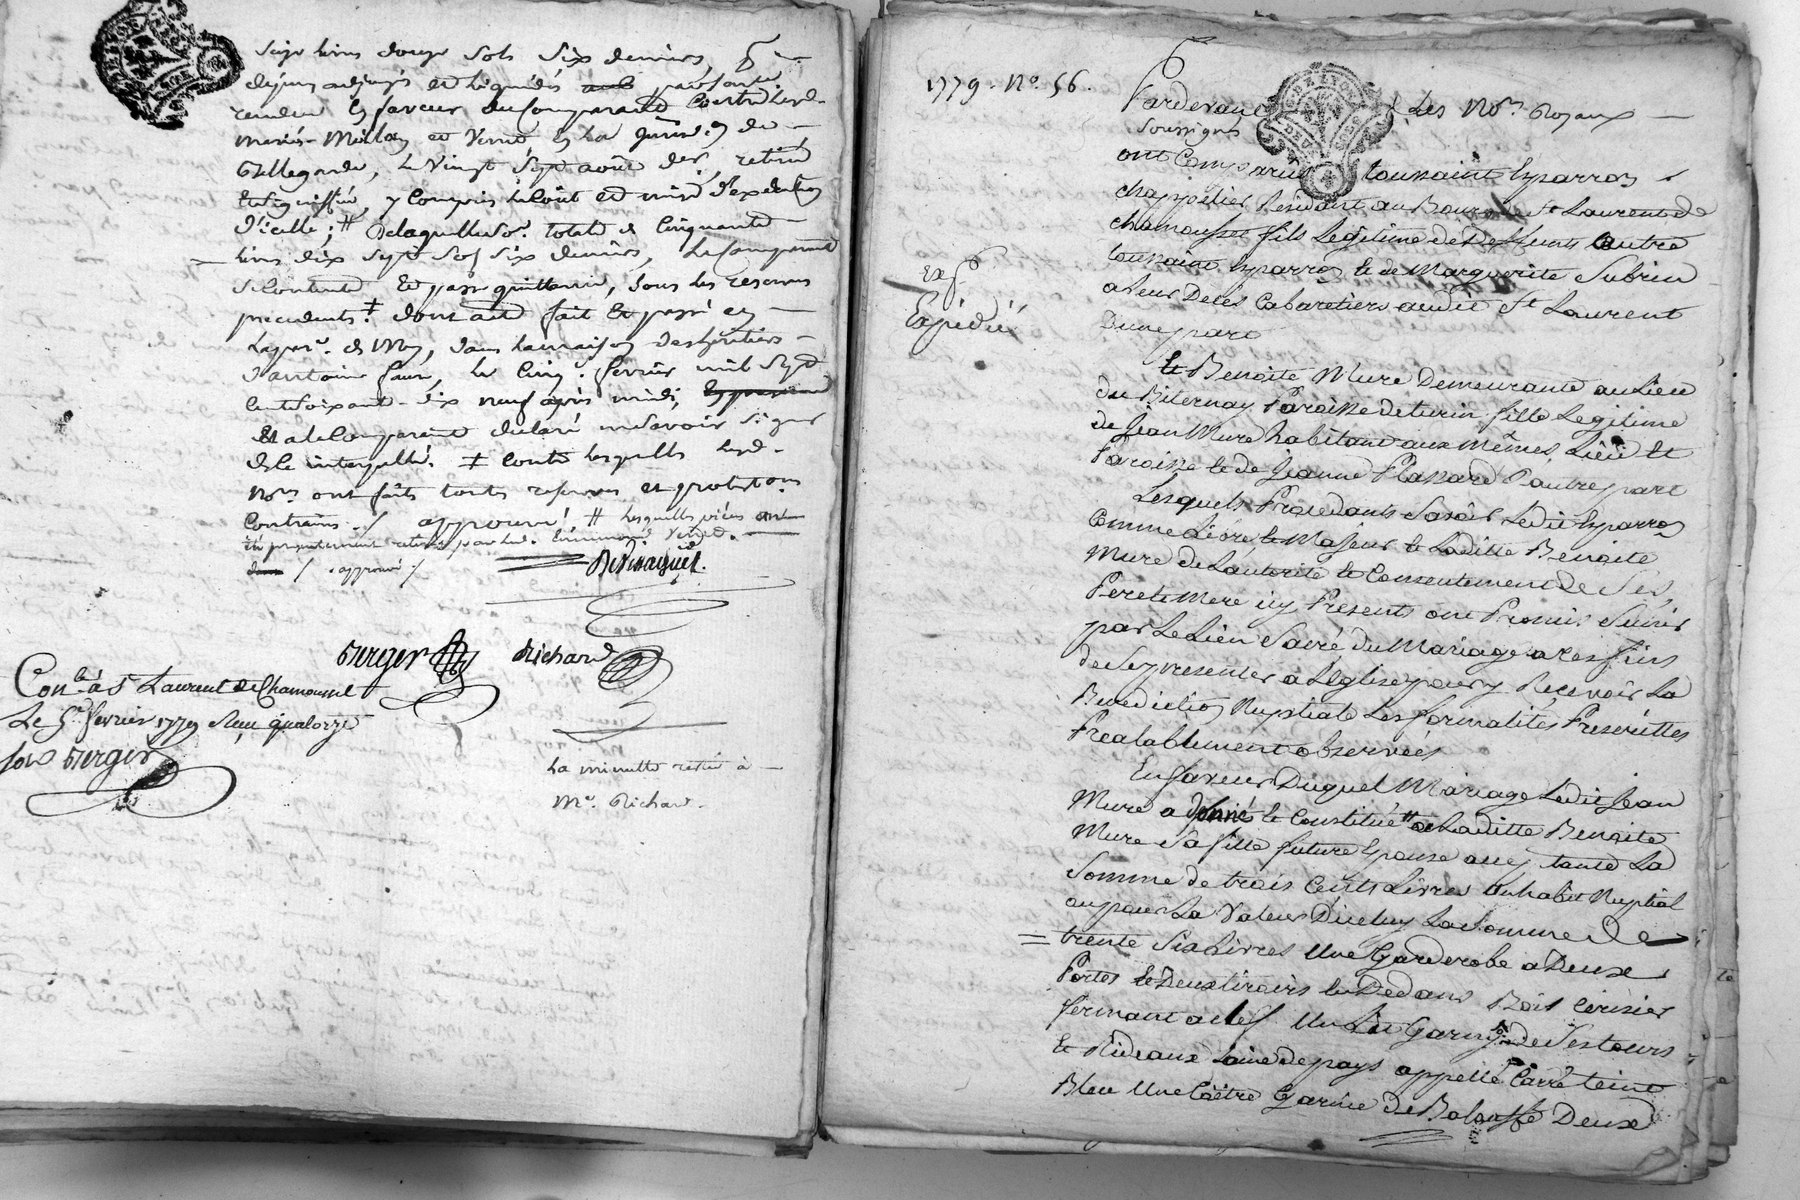 seize livres douze sols six deniers,
dejeun adjugés et liquidés par sent.ce
rendue en faveur du Comparant Contre lesd.
mariés Millan et Verne, en la jurisd.on de
Bellegarde, le vingt sept août der.
signiffiée, y compris le Coût et mise d'exécution
d'icelle; # de laquelle so.e totale de Cinquante
livres dix sept sols six deniers, le Comparant
se Contente et passe quittance, sous les reserves
precedentes. ‡ dont acte fait et passé en
la par.se de Mey, dans la maison des heritiers
d'antoine faure, le Cinq. fevrier mil sept
Cent soixante-dix neuf après midi,
Et a le Comparant declaré ne savoir signer
de ce interpellé. ‡ Contre lesquelles lesd.
No.res ont faits toutes reserves et protestaons
Contraires ./ approuvé, # lesquelles pièces ont
été presentement retirées par led. Verne.
/ approuvé ./
Berger Richard
Con.lé à S.t Laurent de Chamousset
Le 5.e fevrier 1779 Reçu quatorze
sols Berger
La minutte restée à
M.e Richard.
1779. No. 56.
Pardevant Les No.res Royaux
soussignés
ont Comparus toussaint Esparron
chappellier Résidant au Bourg de St Laurent de
chamousset fils Legitime de Deffunts autre
toussaint Esparron Et de Marguerite Subrin
a leur Deces Cabaretiers audit St Laurent
D'une part
Exp.
Expédié
Et Benoite Mure Demeurante au Lieu
du Biternay Paroisse de turin fille Legitime
de Jean Mure habitant aux Mêmes Lieu Et
Paroisse Et de Jeanne Plassard D'autre part
Lesquels Procedants Savoir Ledit Esparron
Comme Libre Et Majeur Et Laditte Benoite
Mure de L'autorité Et Consentement de Ses
Pere Et Mere icy Presents ont Promis S'unir
par Le Lien Sacré du Mariage a Ces fins
de Se presenter a L'Eglise pour y Recevoir La
Benediction Nuptiale Les formalités Prescrittes
Prealablement observées
En faveur Duquel Mariage Ledit Jean
Mure a donné Et Constitué # a Laditte Benoite
Mure Sa fille future Epouse avenante La
Somme de trois Cents Livres Un habit Nuptial
ou pour La Valeur D'icelluy La Somme De
trente Six Livres Une Garderobe a Deux
Portes Et Deux tiroirs En Dedans Bois Cerisier
fermant a clef Un Lit Garny de Ses tours
Et Rideaux Laine de pays appellé Carré teint
Bleu Une Coëtre Garnie de Balouffe Deux